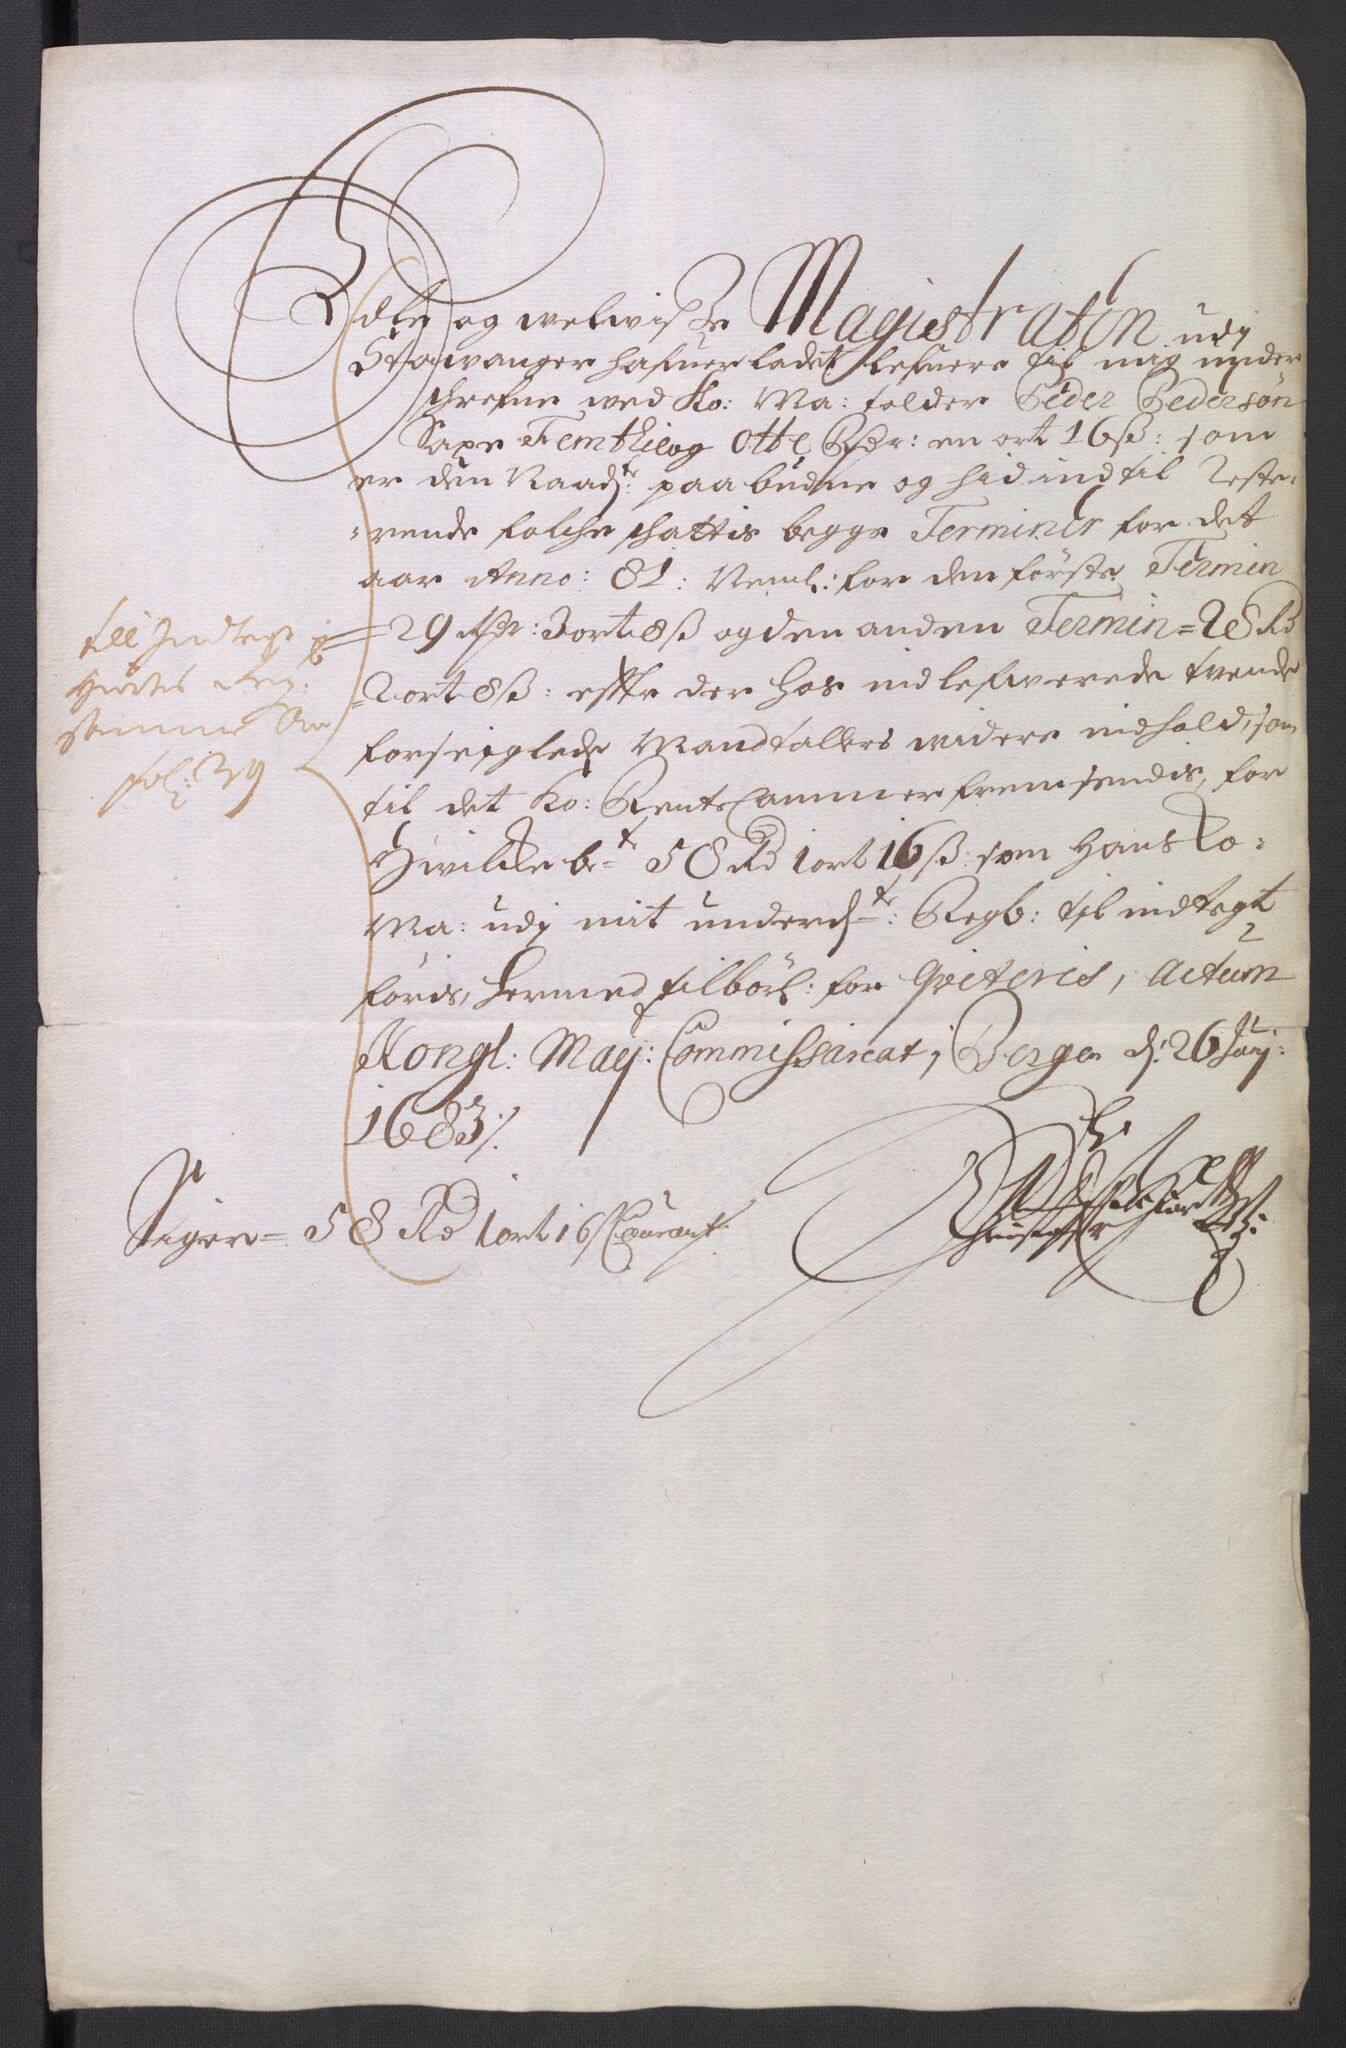 Edle og welwise Magistraten udj
Stawanger hafuer ladet lefuere til mig under
schrefne wed Ko: Ma: tolder Peder Pedersøn
Saxe Femtie og Otte Rdr: en ort 16 ß: som
er den Raadstr: paabudne og hid indtil Reste-
-rende folche schattis begge Terminer for det
aar Anno: 81: Neml: for den første Termin
=29 Rdr: 3 ort 8 ß og den anden Termin = 28 Rd
=2 ort 8 ß: effter der hos indlefwerede tvende
forseiglede Mandtallers widere indhold, som
til det Ko: RenteCammer fremsendis, for
Hwilke be-te 58 Rd 1 ort 16 ß: som Hans Ko=
Ma: udj mit underd-te: Regb: til indtegt
føris, hermed tilbörl: for Qviteris, Actum
Kongl: May: Commissariat j Bergen d: 26 Junj:
1683 ./.
till Indtegt
Hertis Reg:
samme Aar
fol: 39
Siger= 58 Rd 1 ort 16 ß Courant